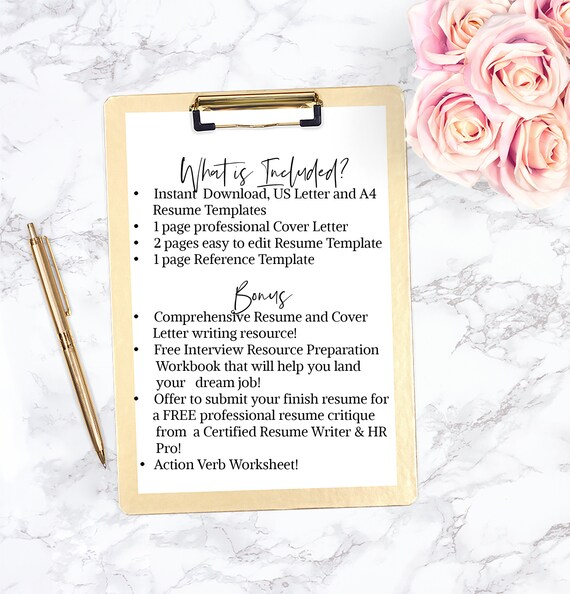 What is Included?
• Instant Download, US Letter and A4
Resume Templates
• 1 page professional Cover Letter
• 2 pages easy to edit Resume Template
• 1 page Reference Template
Bonus
• Comprehensive Resume and Cover
Letter writing resource!
• Free Interview Resource Preparation
Workbook that will help you land
your dream job!
• Offer to submit your finish resume for
a FREE professional resume critique
from a Certified Resume Writer & HR
Pro!
• Action Verb Worksheet!